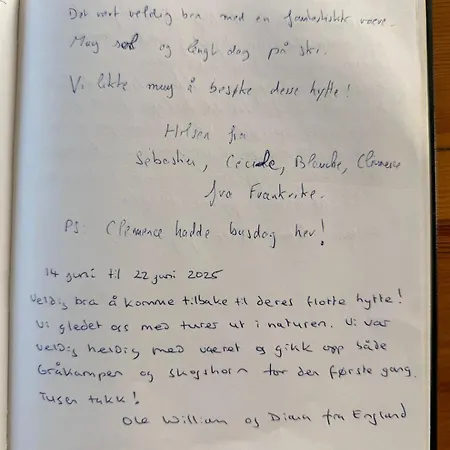 Det vart veldig bra med en fantastikk være.
Mug sol og långt dag på ski.
Vi likte mug å besøke desse hytte!
Hilsen fra
Sébastien, Cécide, Blanche, Clémence
fra Frankrike.
PS: Clémence hadde busdag her!
14 juni til 22 juni 2025
Veldig bra å komme tilbake til deres flotte hytte!
Vi gledet oss med turer ut i naturen. Vi var
veldig heldig med været og gikk opp både
Gråkampen og Skogshorn for den første gang.
Tusen takk!
Ole William og Diana fra England